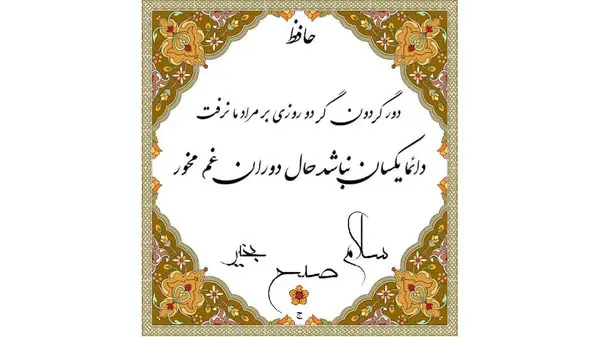 حافظ
دور گردون گر دو روزی بر مراد ما نرفت
دائما یکسان نباشد حال دوران غم مخور
سلام
صبح بخیر
ج